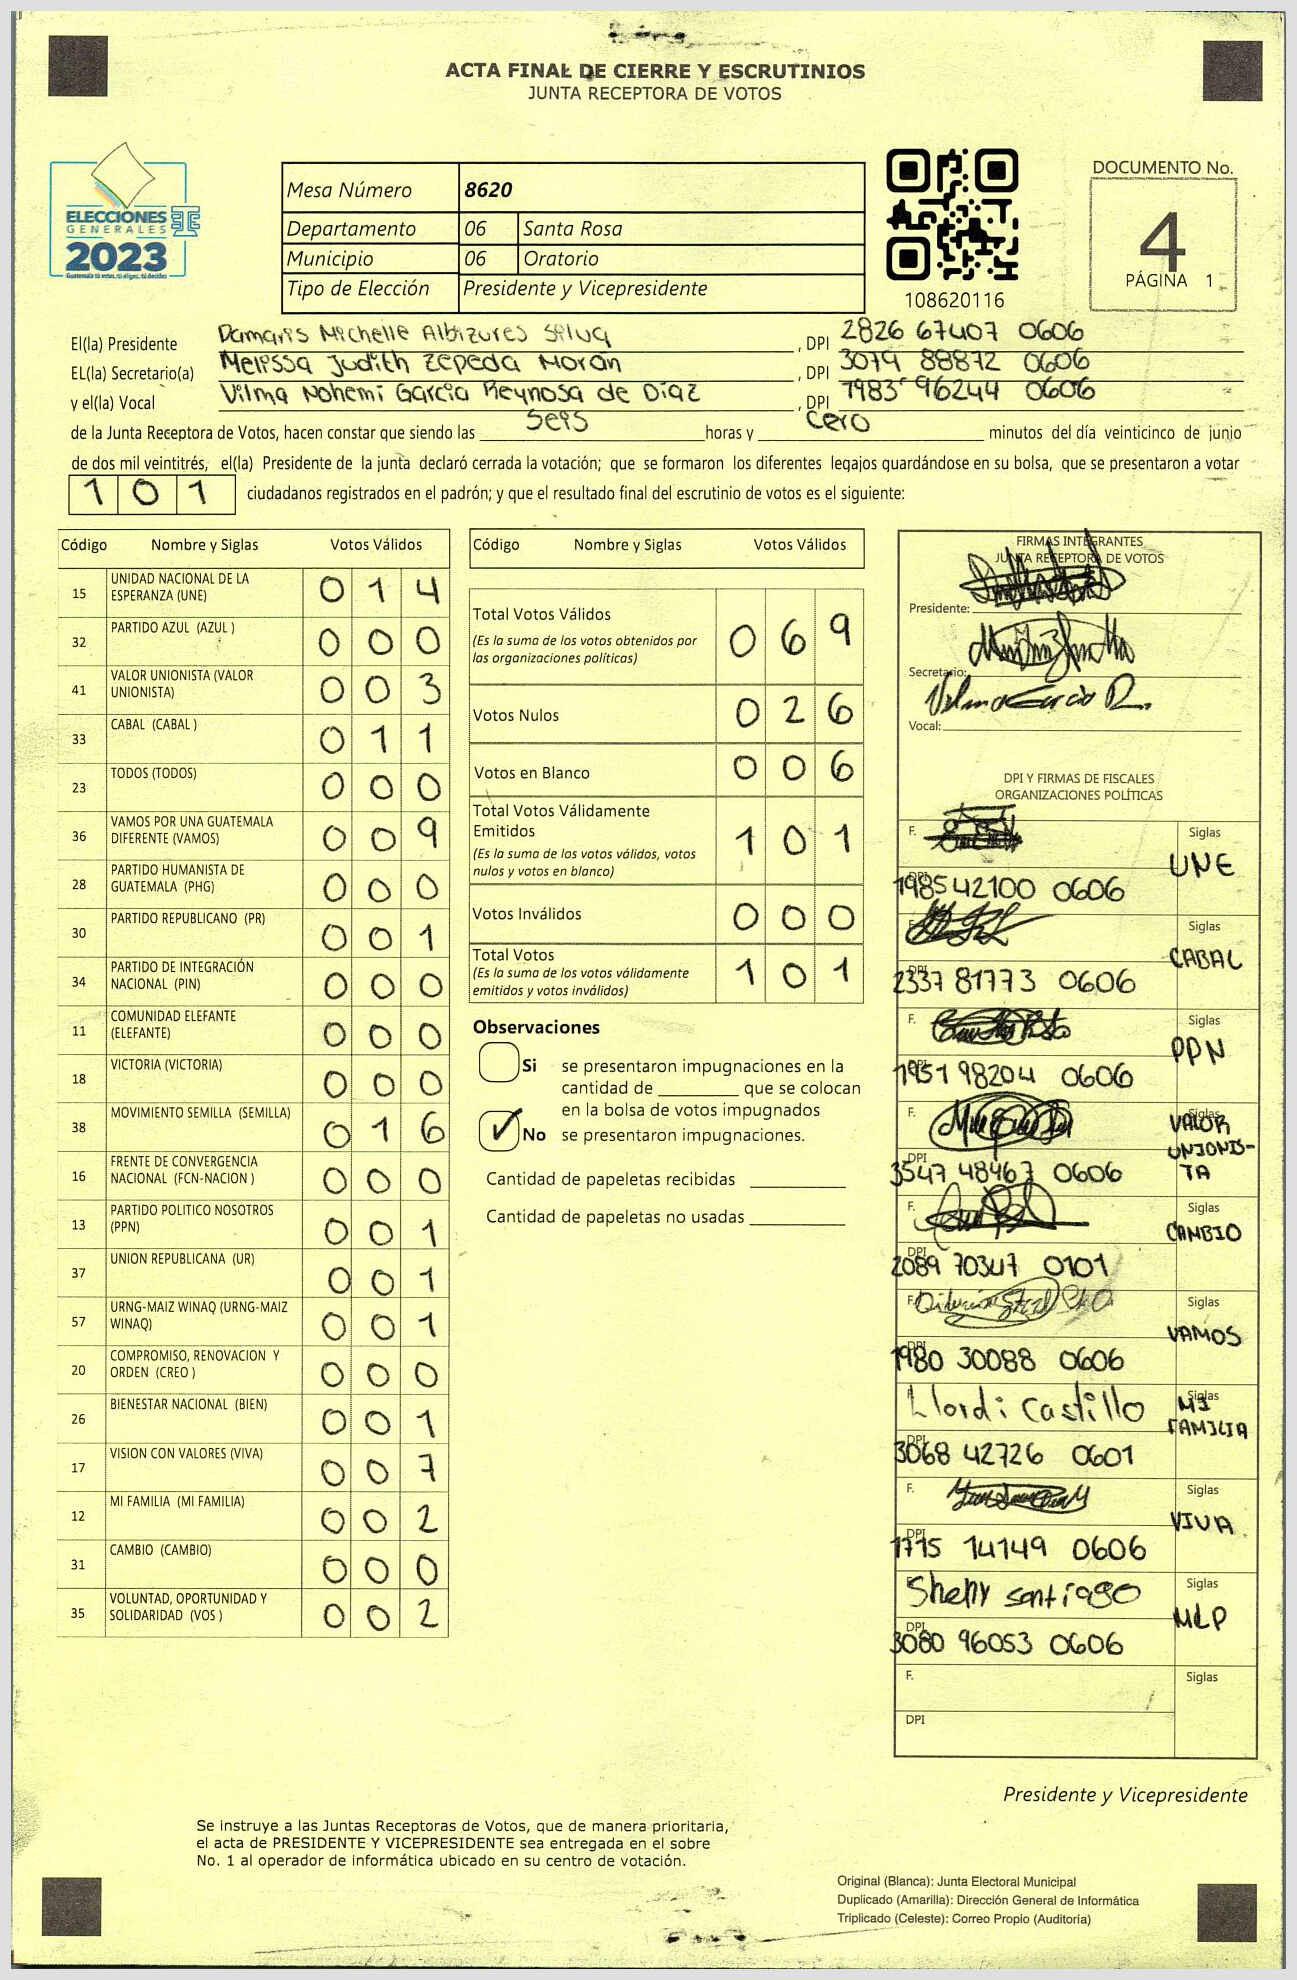 ACTA FINAL DE CIERRE Y ESCRUTINIOS
JUNTA RECEPTORA DE VOTOS
ELECCIONES
GENERALES
2023
Guatemala tú votas, tú eliges, tú decides
Mesa Número 8620
Departamento 06 Santa Rosa
Municipio 06 Oratorio
Tipo de Elección Presidente y Vicepresidente
108620116
DOCUMENTO No.
4
PÁGINA 1
El(la) Presidente Damaris Michelle Albizures Silva , DPI 2826 67407 0606
EL(la) Secretario(a) Melissa Judith Zepeda Morán , DPI 3079 88872 0606
y el(la) Vocal Vilma Nohemi Garcia Reynosa de Díaz , DPI 7983 96244 0606
de la Junta Receptora de Votos, hacen constar que siendo las Seis horas y Cero minutos del día veinticinco de junio
de dos mil veintitrés, el(la) Presidente de la junta declaró cerrada la votación; que se formaron los diferentes legajos guardándose en su bolsa, que se presentaron a votar
101 ciudadanos registrados en el padrón; y que el resultado final del escrutinio de votos es el siguiente:
Código Nombre y Siglas Votos Válidos
15 UNIDAD NACIONAL DE LA ESPERANZA (UNE) 014
32 PARTIDO AZUL (AZUL ) 000
41 VALOR UNIONISTA (VALOR UNIONISTA) 003
33 CABAL (CABAL ) 011
23 TODOS (TODOS) 000
36 VAMOS POR UNA GUATEMALA DIFERENTE (VAMOS) 009
28 PARTIDO HUMANISTA DE GUATEMALA (PHG) 000
30 PARTIDO REPUBLICANO (PR) 001
34 PARTIDO DE INTEGRACIÓN NACIONAL (PIN) 000
11 COMUNIDAD ELEFANTE (ELEFANTE) 000
18 VICTORIA (VICTORIA) 000
38 MOVIMIENTO SEMILLA (SEMILLA) 016
16 FRENTE DE CONVERGENCIA NACIONAL (FCN-NACION ) 000
13 PARTIDO POLITICO NOSOTROS (PPN) 001
37 UNION REPUBLICANA (UR) 001
57 URNG-MAIZ WINAQ (URNG-MAIZ WINAQ) 001
20 COMPROMISO, RENOVACION Y ORDEN (CREO ) 000
26 BIENESTAR NACIONAL (BIEN) 001
17 VISION CON VALORES (VIVA) 007
12 MI FAMILIA (MI FAMILIA) 002
31 CAMBIO (CAMBIO) 000
35 VOLUNTAD, OPORTUNIDAD Y SOLIDARIDAD (VOS ) 002
Código Nombre y Siglas Votos Válidos
Total Votos Válidos 069
(Es la suma de los votos obtenidos por
las organizaciones políticas)
Votos Nulos 026
Votos en Blanco 006
Total Votos Válidamente
Emitidos 101
(Es la suma de los votos válidos, votos
nulos y votos en blanco)
Votos Inválidos 000
Total Votos 101
(Es la suma de los votos válidamente
emitidos y votos inválidos)
Observaciones
Si se presentaron impugnaciones en la
cantidad de ________ que se colocan
en la bolsa de votos impugnados
✓ No se presentaron impugnaciones.
Cantidad de papeletas recibidas
Cantidad de papeletas no usadas
FIRMAS INTEGRANTES
JUNTA RECEPTORA DE VOTOS
Presidente:
Secretario:
Vilma Garcia R.
Vocal:
DPI Y FIRMAS DE FISCALES
ORGANIZACIONES POLÍTICAS
F. Siglas UNE
DPI 1985 42100 0606
F. Siglas CABAL
DPI 2337 81773 0606
F. Siglas PPN
DPI 1951 98204 0606
F. Siglas VALOR UNIONIS-TA
DPI 3547 48467 0606
F. Siglas CAMBIO
DPI 2089 70347 0101
F. Siglas VAMOS
DPI 1980 30088 0606
F. Llordi Castillo Siglas MI FAMILIA
DPI 3068 42726 0601
F. Siglas VIVA
DPI 1775 14149 0606
F. Shelly santiago Siglas MLP
DPI 3080 96053 0606
F. Siglas
DPI
Presidente y Vicepresidente
Se instruye a las Juntas Receptoras de Votos, que de manera prioritaria,
el acta de PRESIDENTE Y VICEPRESIDENTE sea entregada en el sobre
No. 1 al operador de informática ubicado en su centro de votación.
Original (Blanca): Junta Electoral Municipal
Duplicado (Amarilla): Dirección General de Informática
Triplicado (Celeste): Correo Propio (Auditoría)